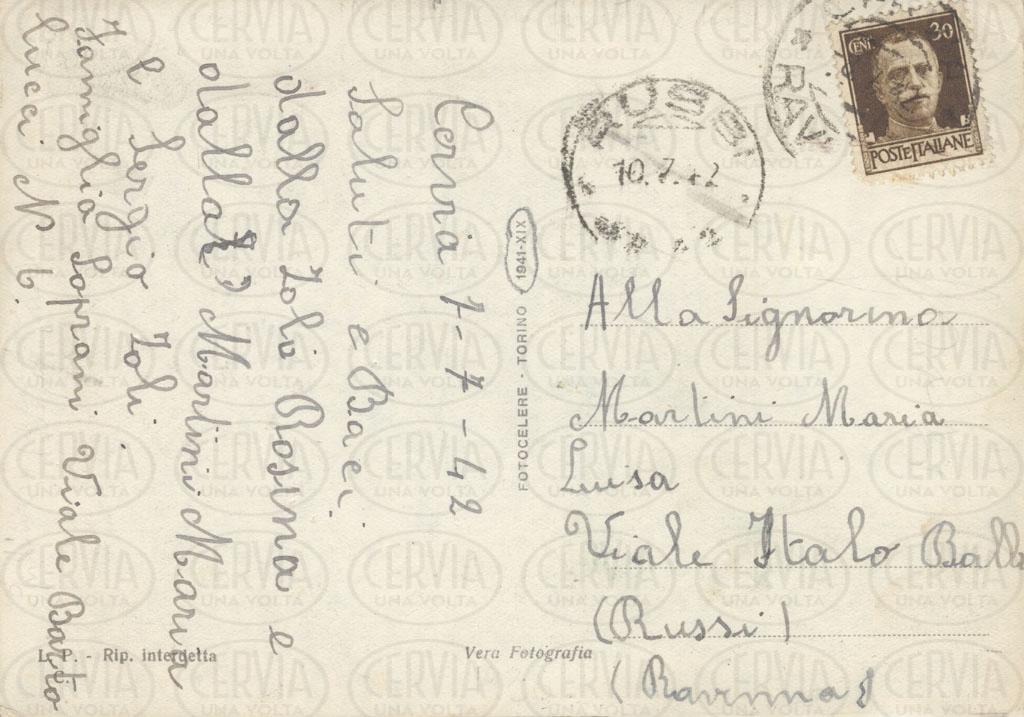 Cervia 7-7-42
Saluti e Baci
dalla Zoli Rosina e
dalla Martini Maria
e Sergio Zoli.
Famiglia Soprani Viale Batto
Lucci N 6.
FOTOCELERE - TORINO - 1941-XIX
L. P. - Rip. interdetta
Vera Fotografia
RUSSI
10.7.42
RAV
CENT 30
POSTE ITALIANE
Alla Signorina
Martini Maria
Luisa
Viale Italo Balb
(Russi)
(Ravenna)
CERVIA
UNA VOLTA